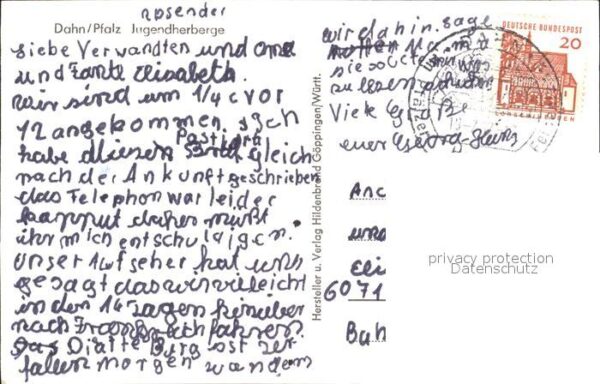 absender
Dahn/Pfalz Jugendherberge
Liebe Verwandten und Oma
und Tante Elisabeth.
wir sind um 1/4 vor
12 angekommen. Ich
habe diesen Postkarte gleich
nach der Ankunft geschrieben
das Telephon war leider
kapput daher müßt
ihr mich entschuldigen.
Unser Aufseher hat uns
gesagt das wir vielleicht
in den 14 Tagen hinüber
nach Frankreich fahren.
Das Burg ist zer
fallen morgen wandern
wir dahin. sage
Mama
sie sollte
zu lesen
Viele Grüße
euer Georg-Hans
DEUTSCHE BUNDESPOST
20
LORSCH/HESSEN
Hersteller u. Verlag Hildenbrand Göppingen/Württ.
und
Eli
6071
privacy protection
Datenschutz